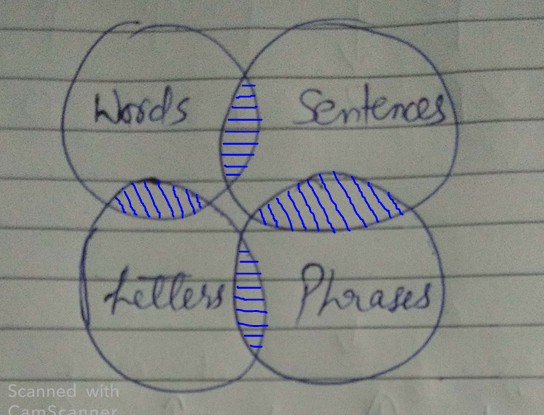 Words
Sentences
Letters
Phrases
Scanned with
CamScanner